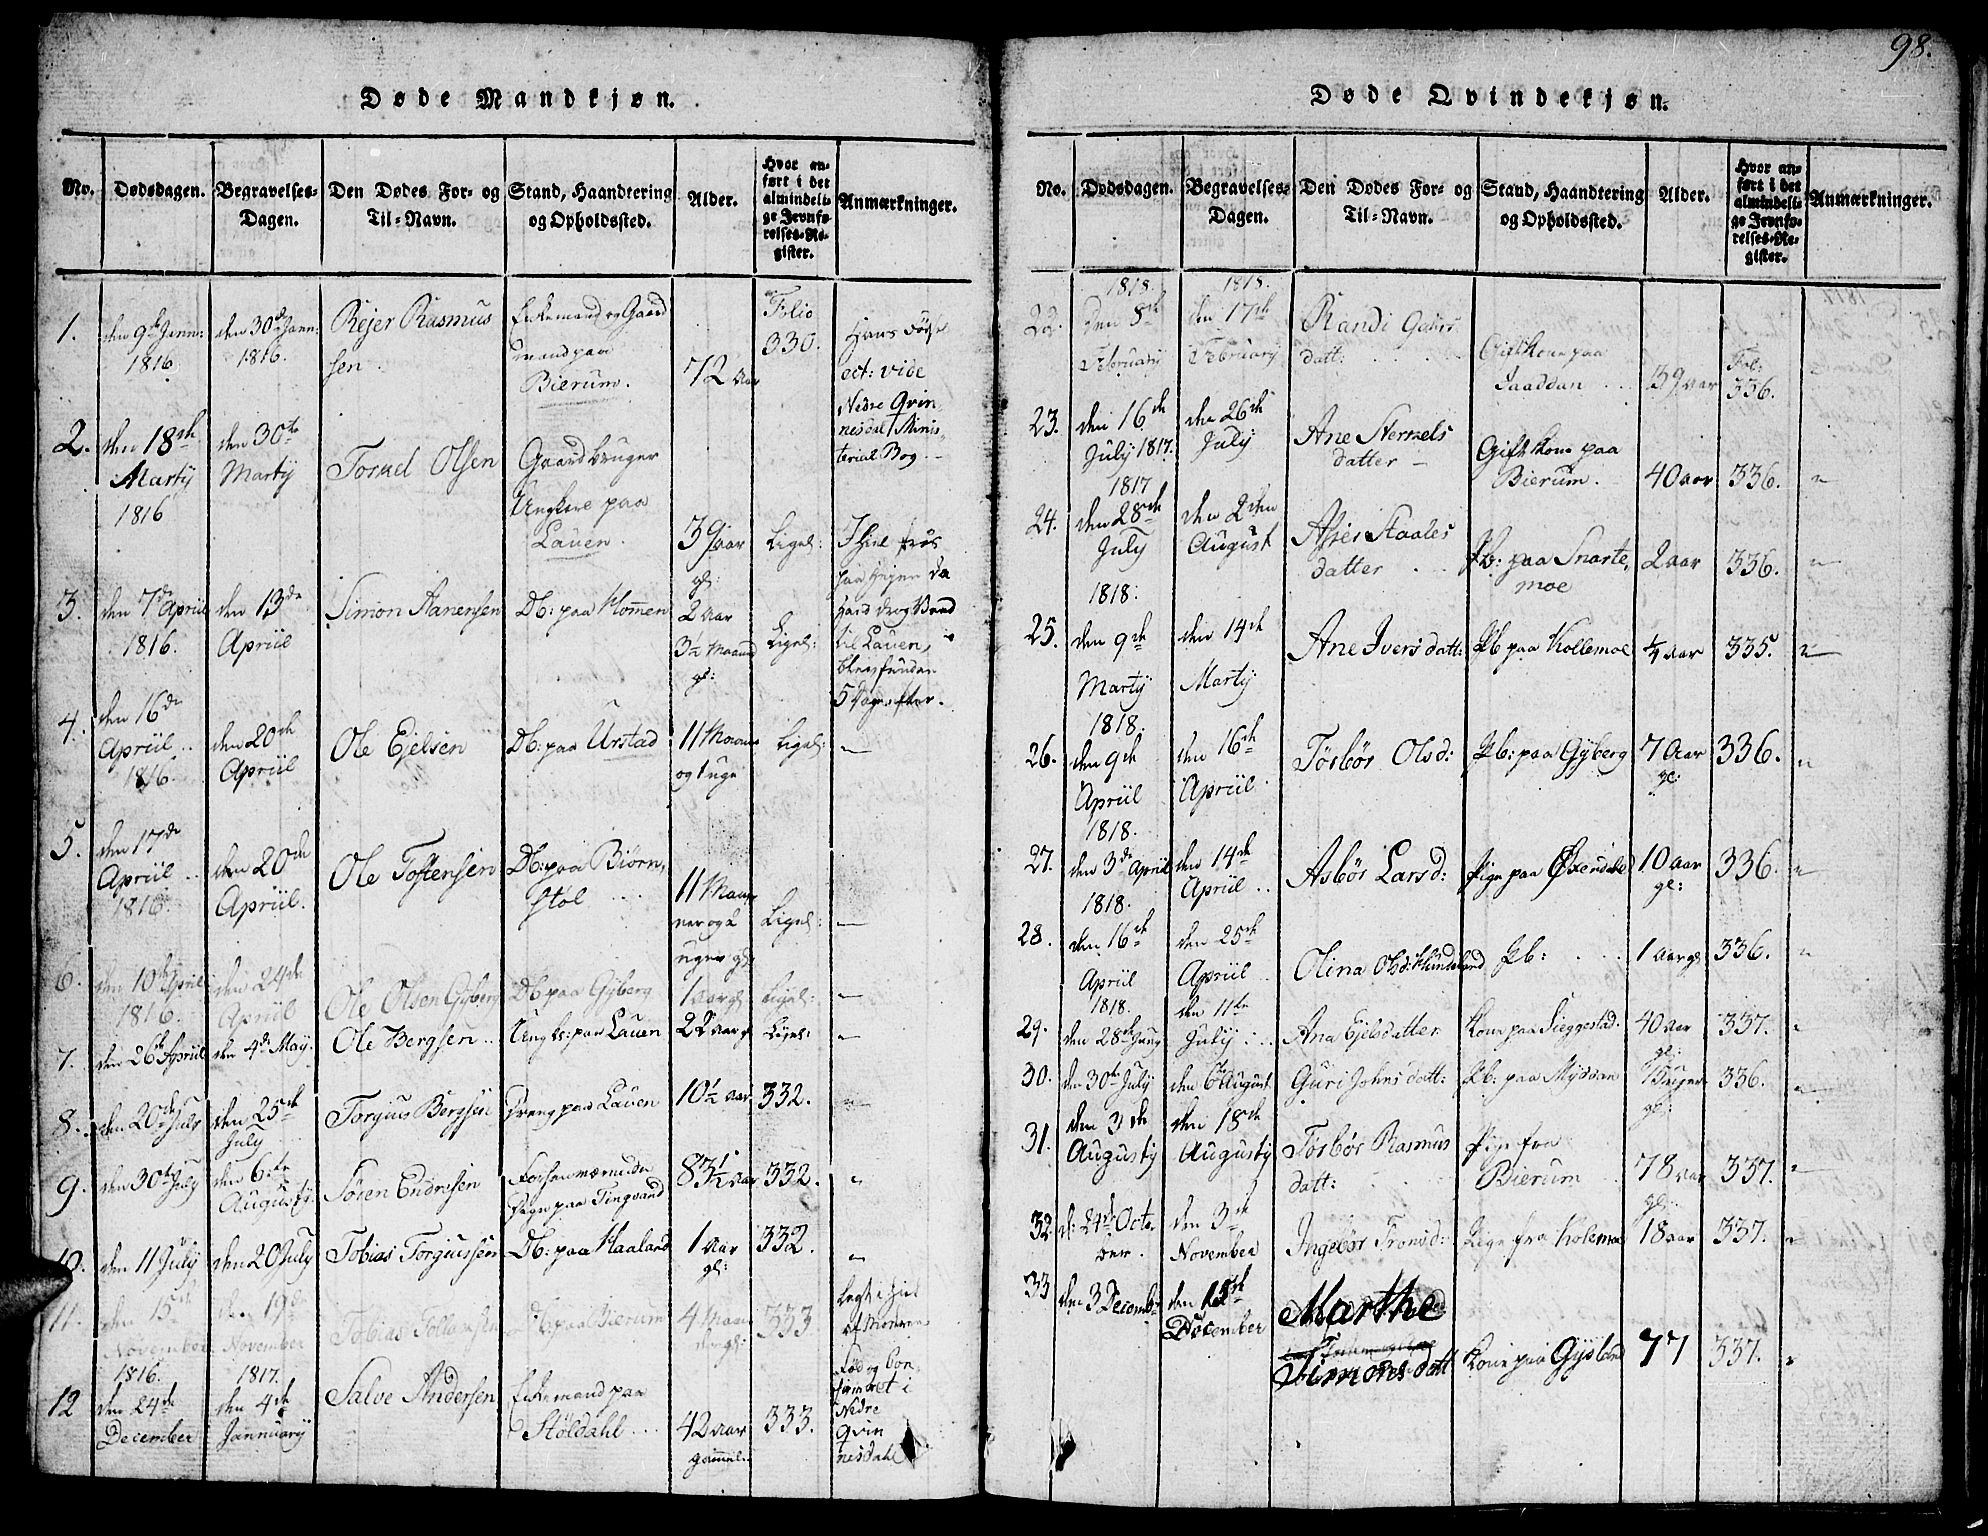 98.
Døde Mandkjøn.
No. Dødsdagen. Begravelses-Dagen. Den Dødes For- og Til-Navn. Stand, Haandtering og Opholdssted. Alder. Hvor anført i det almindelige Jevnførelses-Register. Anmærkninger.
1. den 9de Jann: 1816. den 30te Jann: 1816. Rejer Rasmus
sen. Enkemand og Gaard
mand paa
Bierum. 72 aar Folio
330. Hans Føds
ect: vide
Nedre Qvin
nesdal Minis
terial Bog.
2. den 18de Marty 1816 den 30te Marty Torkel Olsen Gaardbruger
Ungkarl paa
Lauen. 39 aar gl: Ligel:
til Lauen,
blev funden
5 Dage efter.
3. den 7de Apriil 1816. den 13de Apriil Simon Aanensen Db: paa Homen 2 aar
3½ Maaned
gl: Ligel:
4. den 16de Apriil 1816. den 20de Apriil Ole Ejelsen Db: paa Urstad 11 Maaner
og 1 uge Ligel: —
5. den 17de Apriil 1816. den 20de Apriil. Ole Tostensen Db: paa Biørn,
støl 11 Maaner
og 2
uger gl: Ligel: —
6. den 10de Apriil 1816. den 24de Apriil Ole Olsen Gyberg Db paa Gyberg 1 aar gl: Ligel: —
7. den 26de Apriil den 4de May. Ole Bergsen Ungk: paa Lauen 22 aar gl Ligel: —
8. den 20de July den 25de July Torgius Bergsen Dreng paa Lauen 10½ aar 332. —
9. den 30te July den 6te Augusty Søren Endresen
paa Tingvand 83½ aar 332. "
10. den 11 July den 20 July Tobias Torgiussen Db: paa Haaland 1 aar
gl: 332. "
11. den 15de November 1816. den 19de November Tobias Tollaksen Db: paa Bierum 4 Maaneder gl: 333
12 den 24de December den 4de Jannuary 1817. Salve Andersen Enkemand paa
Støldahl 42 aar
gammel 333. Fød og Con
firmeret i
Nedre
Qvin
nesdahl
Døde Qvindekjøn.
No. Dødsdagen. Begravelses-Dagen. Den Dødes For- og Til-Navn. Stand, Haandtering og Opholdssted. Alder. Hvor anført i det almindelige Jevnførelses-Register. Anmærkninger.
22. 1818. den 8de February 1818. den 17de February Randi
datt: Gift Kone paa
39 aar Fol:
336.
23. den 16de July 1817. den 26de July Ane
datter — Gift Kone paa
Bierum. 40 aar 336. "
24. 1817 den 28de July den 2den August Asser Staales
datter Pb: paa Snarte,
moe 2 aar 336. "
25. 1818. den 9de Marty den 14de Marty Ane Iversdatt: Pb paa Kollemoe ¼ aar 335. "
26. 1818. den 9de Apriil den 16de Apriil Torbør Olsd: Pb: paa Gyberg 7 Aar
gl: 336. "
27. 1818. den 3de Apriil den 14de Apriil Asbør Larsd: Pige paa Øxendahl 10 aar
gl: 336. "
28. 1818. den 16de Apriil den 25de Apriil Olina Olsd: Pb: 1 aar gl 336. "
29. 1818. den 28de Juny den 11te July Ana Ejelsdatter Kone paa Sieggestad. 40 aar
gl: 337. "
30. den 30te July den 6te August Guri Johnsdatt: Pb: paa
gl: 336. "
31. den 3de Augusty den 18de Augusty Torbør Rasmus
datt: Pige fra
Bierum 78 aar
gl: 337. "
32. d: 24de Octo,
ber. den 3de November Ingebør Tronsd: Pige fra Kolemoe 18 aar 337. "
33 den 3 Decembr den 15de December Marthe
Simonsdatt Kone paa Gysland 77 337. "